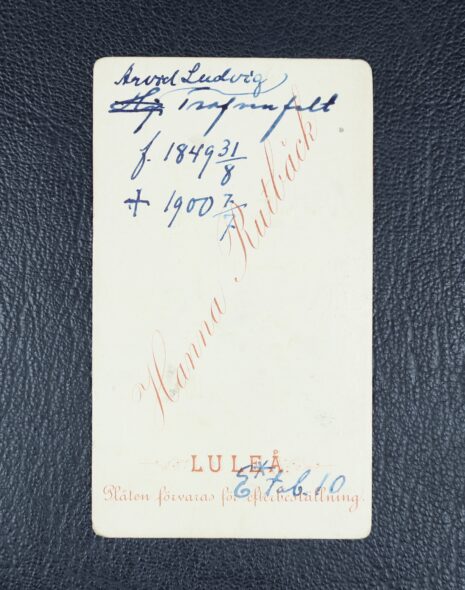 Arvid Ludvig
Hj. Trafvenfelt
f. 1849 31/8
† 1900 7/7
Hanna Rutbäck
LULEÅ.
E* Tab. 10
Plåten förvaras för efterbeställning.